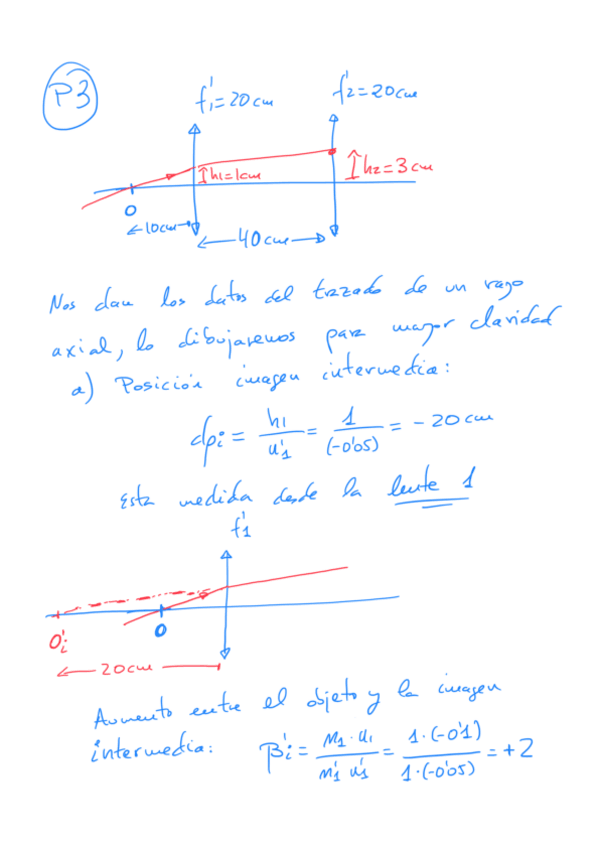 P3
f'1=20cm
f'2=20cm
h1=1cm
h2=3cm
O
10cm
40cm
Nos dan los datos del trazado de un rayo
axial, lo dibujaremos para mayor claridad
a) Posición imagen intermedia:
dpi = h1/u'1 = 1/(-0'05) = -20cm
Esta medida desde la lente 1
f'1
O'i
O
20cm
Aumento entre el objeto y la imagen
intermedia: β'i = n1·u1/n'1 u'1 = 1·(-0'1)/1·(-0'05) = +2